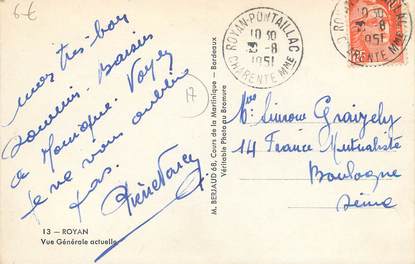 6€
mes très bon
souvenir. Baisers
à Monique. Voyez
je ne vous oublie
pas.
13 — ROYAN
Vue Générale actuelle
M. BERJAUD 68, Cours de la Martinique - Bordeaux
Véritable Photo au Bromure
ROYAN-PONTAILLAC
10 30
-8
1951
CHARENTE MME
10 30
-8
1951
Simone Graizely
14 France Mutualiste
Boulogne
Seine